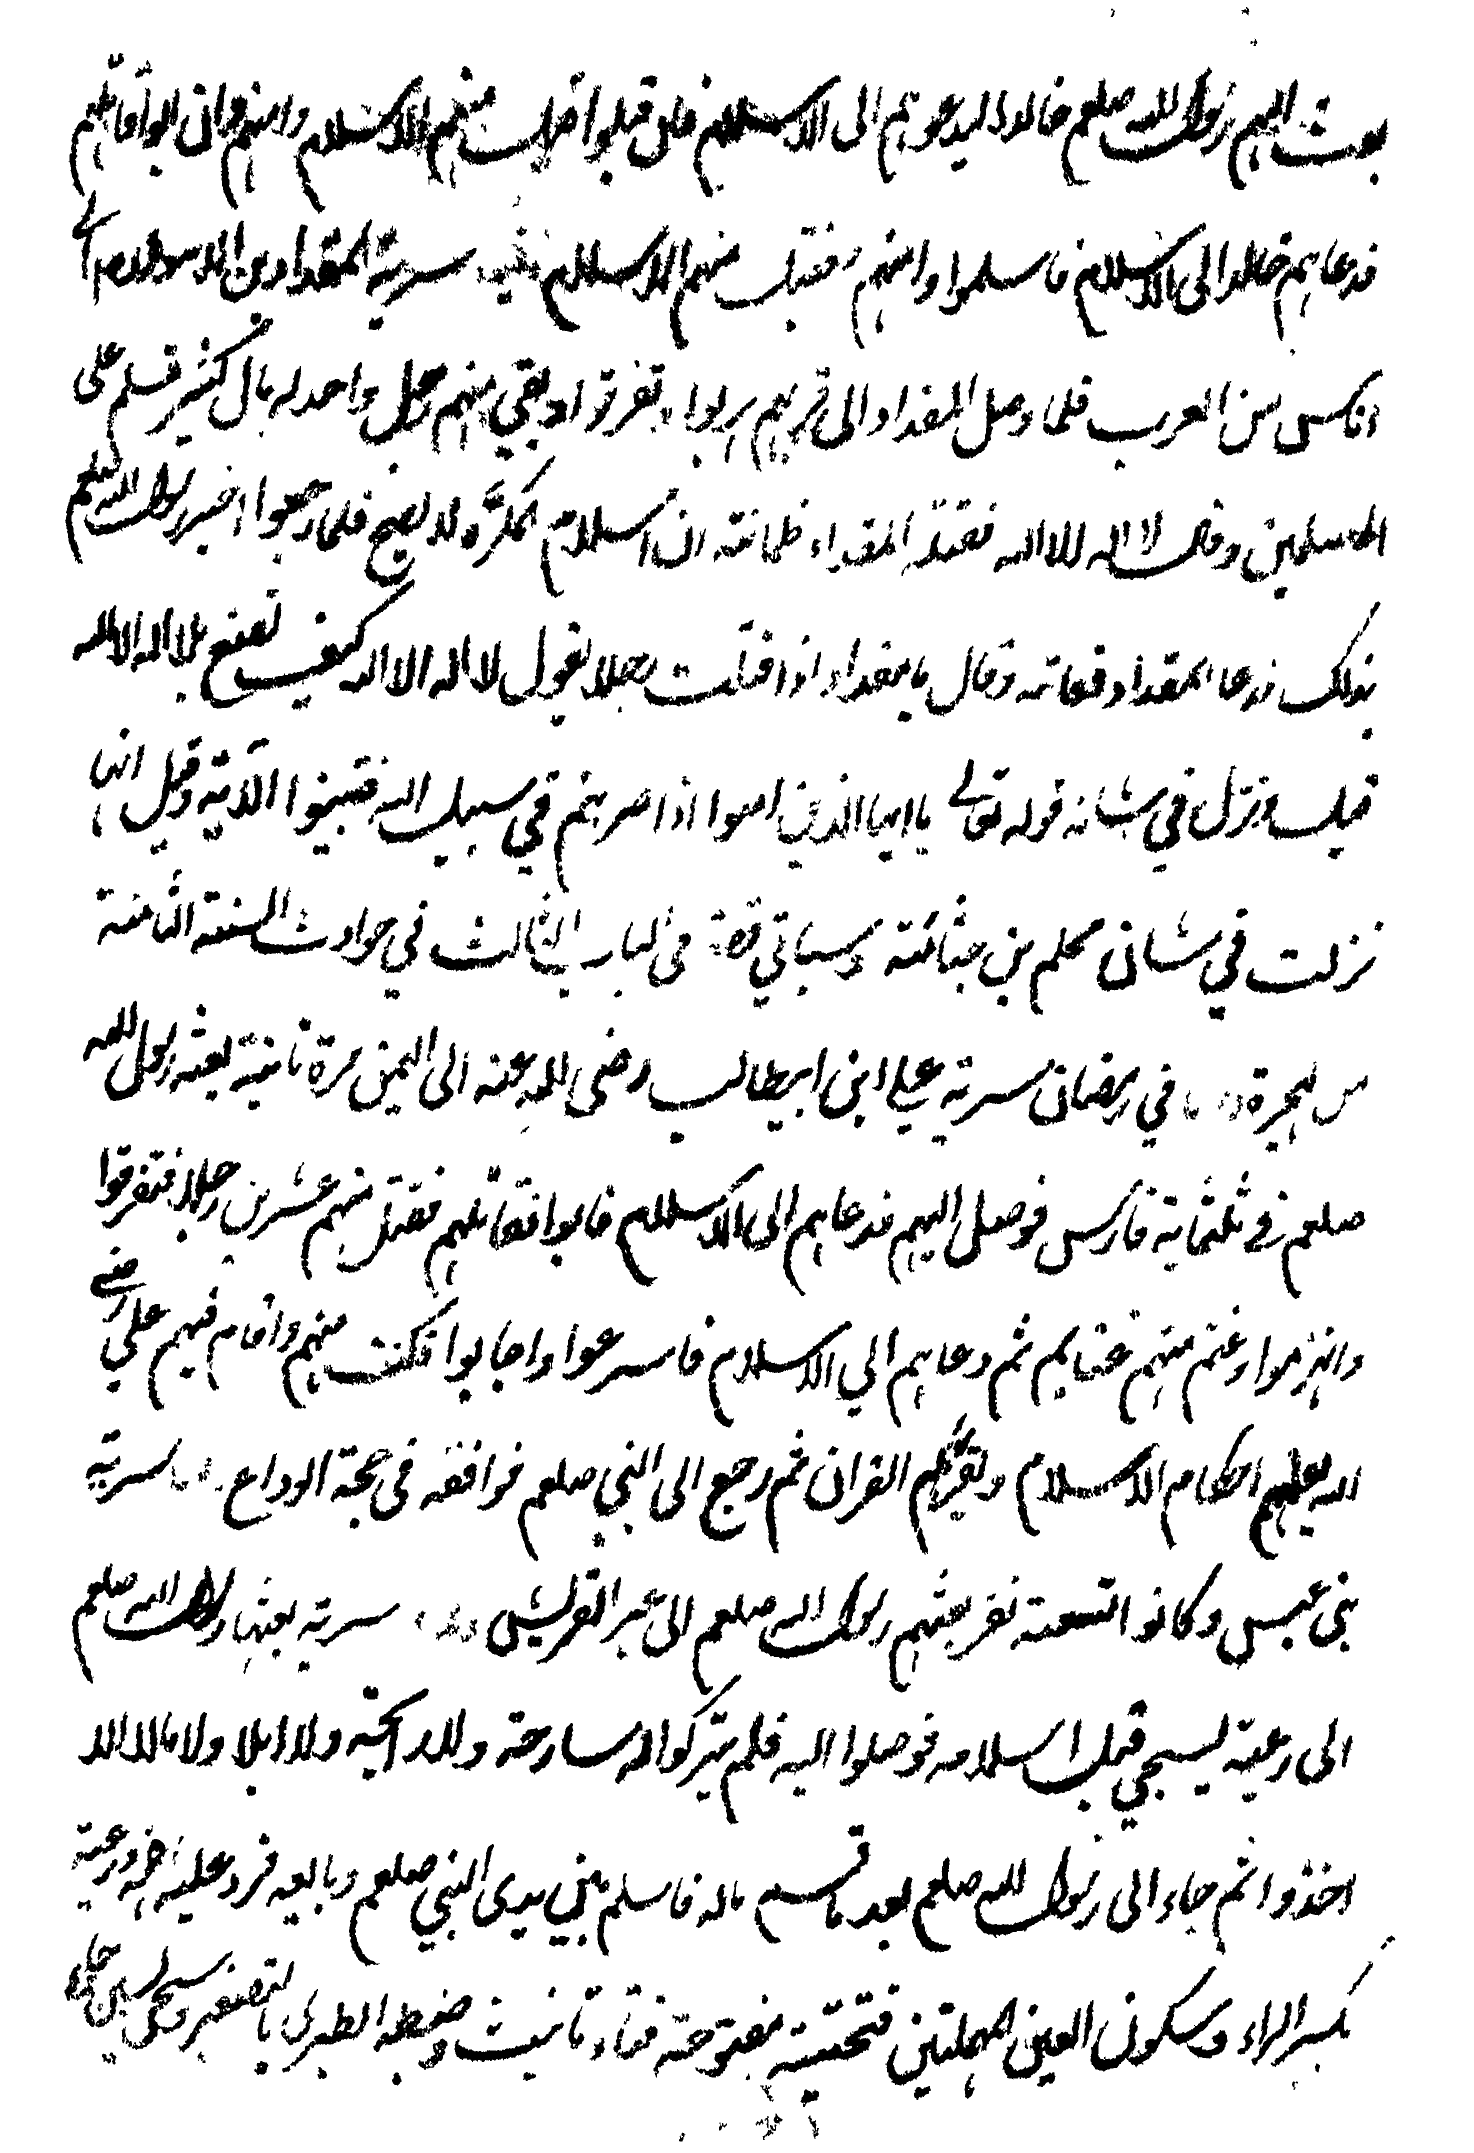 بعث اليهم رسول الله صلعم خالدا ليدعوهم الى الاسلام فان قبلوا اقبل منهم الاسلام وامنهم وان ابوا قاتلهم
فدعاهم خالد الى الاسلام فاسلموا وامنهم فقبل منهم الاسلام سرية المقداد بن الاسود الى
اناس من العرب فلما وصل المقداد الى قربهم هربوا وتفرقوا وبقي منهم رجل واحد له مال كثير فسلم على
المسلمين وقال لا اله الا الله فقتله المقداد ظانا منه ان اسلامه كرّه لا يصح فلما رجعوا اخبر رسول الله صلعم
بذلك فدعا المقداد فعاتبه وقال يا مقداد اذا قتلت رجلا يقول لا اله الا الله كيف تصنع بلا اله الا الله
قيل ونزل في شانه قوله تعالى يا ايها الذين امنوا اذا ضربتم في سبيل الله فتبينوا الآية وقيل انها
نزلت في شان محلم بن جثامة وسياتي قصة في الباب الثالث في حوادث السنة الثامنة
من الهجرة في رمضان سرية علي ابن ابيطالب رضى الله عنه الى اليمن مرة ثانية بعثه رسول الله
صلعم في ثلثماية فارس فوصل اليهم فدعاهم الى الاسلام فابوا فقاتلهم فقتل منهم عشرين رجلا فتفرقوا
وانهزموا وغنم منهم غنايم ثم دعاهم الي الاسلام فاسرعوا واجابوا فكف منهم واقام فيهم علي رضي
الله يعلمهم احكام الاسلام ويقرّيهم القران ثم رجع الى النبي صلعم فوافقه فى حجة الوداع سرية
بنى عبس وكانوا تسعة نفر بعثهم رسول الله صلعم الى عير القريش سرية بعثها رسول الله صلعم
الى رعية لسحيمي قبل اسلامه فوصلوا اليه فلم يتركوا له سارحة ولا رايحة ولا ابلا ولا مالا الا
اخذوا ثم جاء الى رسول الله صلعم بعد ما قسم ماله فاسلم بين يدى النبي صلعم وبايعه فرد عليه اخره ورعية
بكسر الراء وسكون العين المهملتين فتحتية مفتوحة فتاء تانيث وضبطه الطبرى بالتصغير وسحيمي بسين حاء